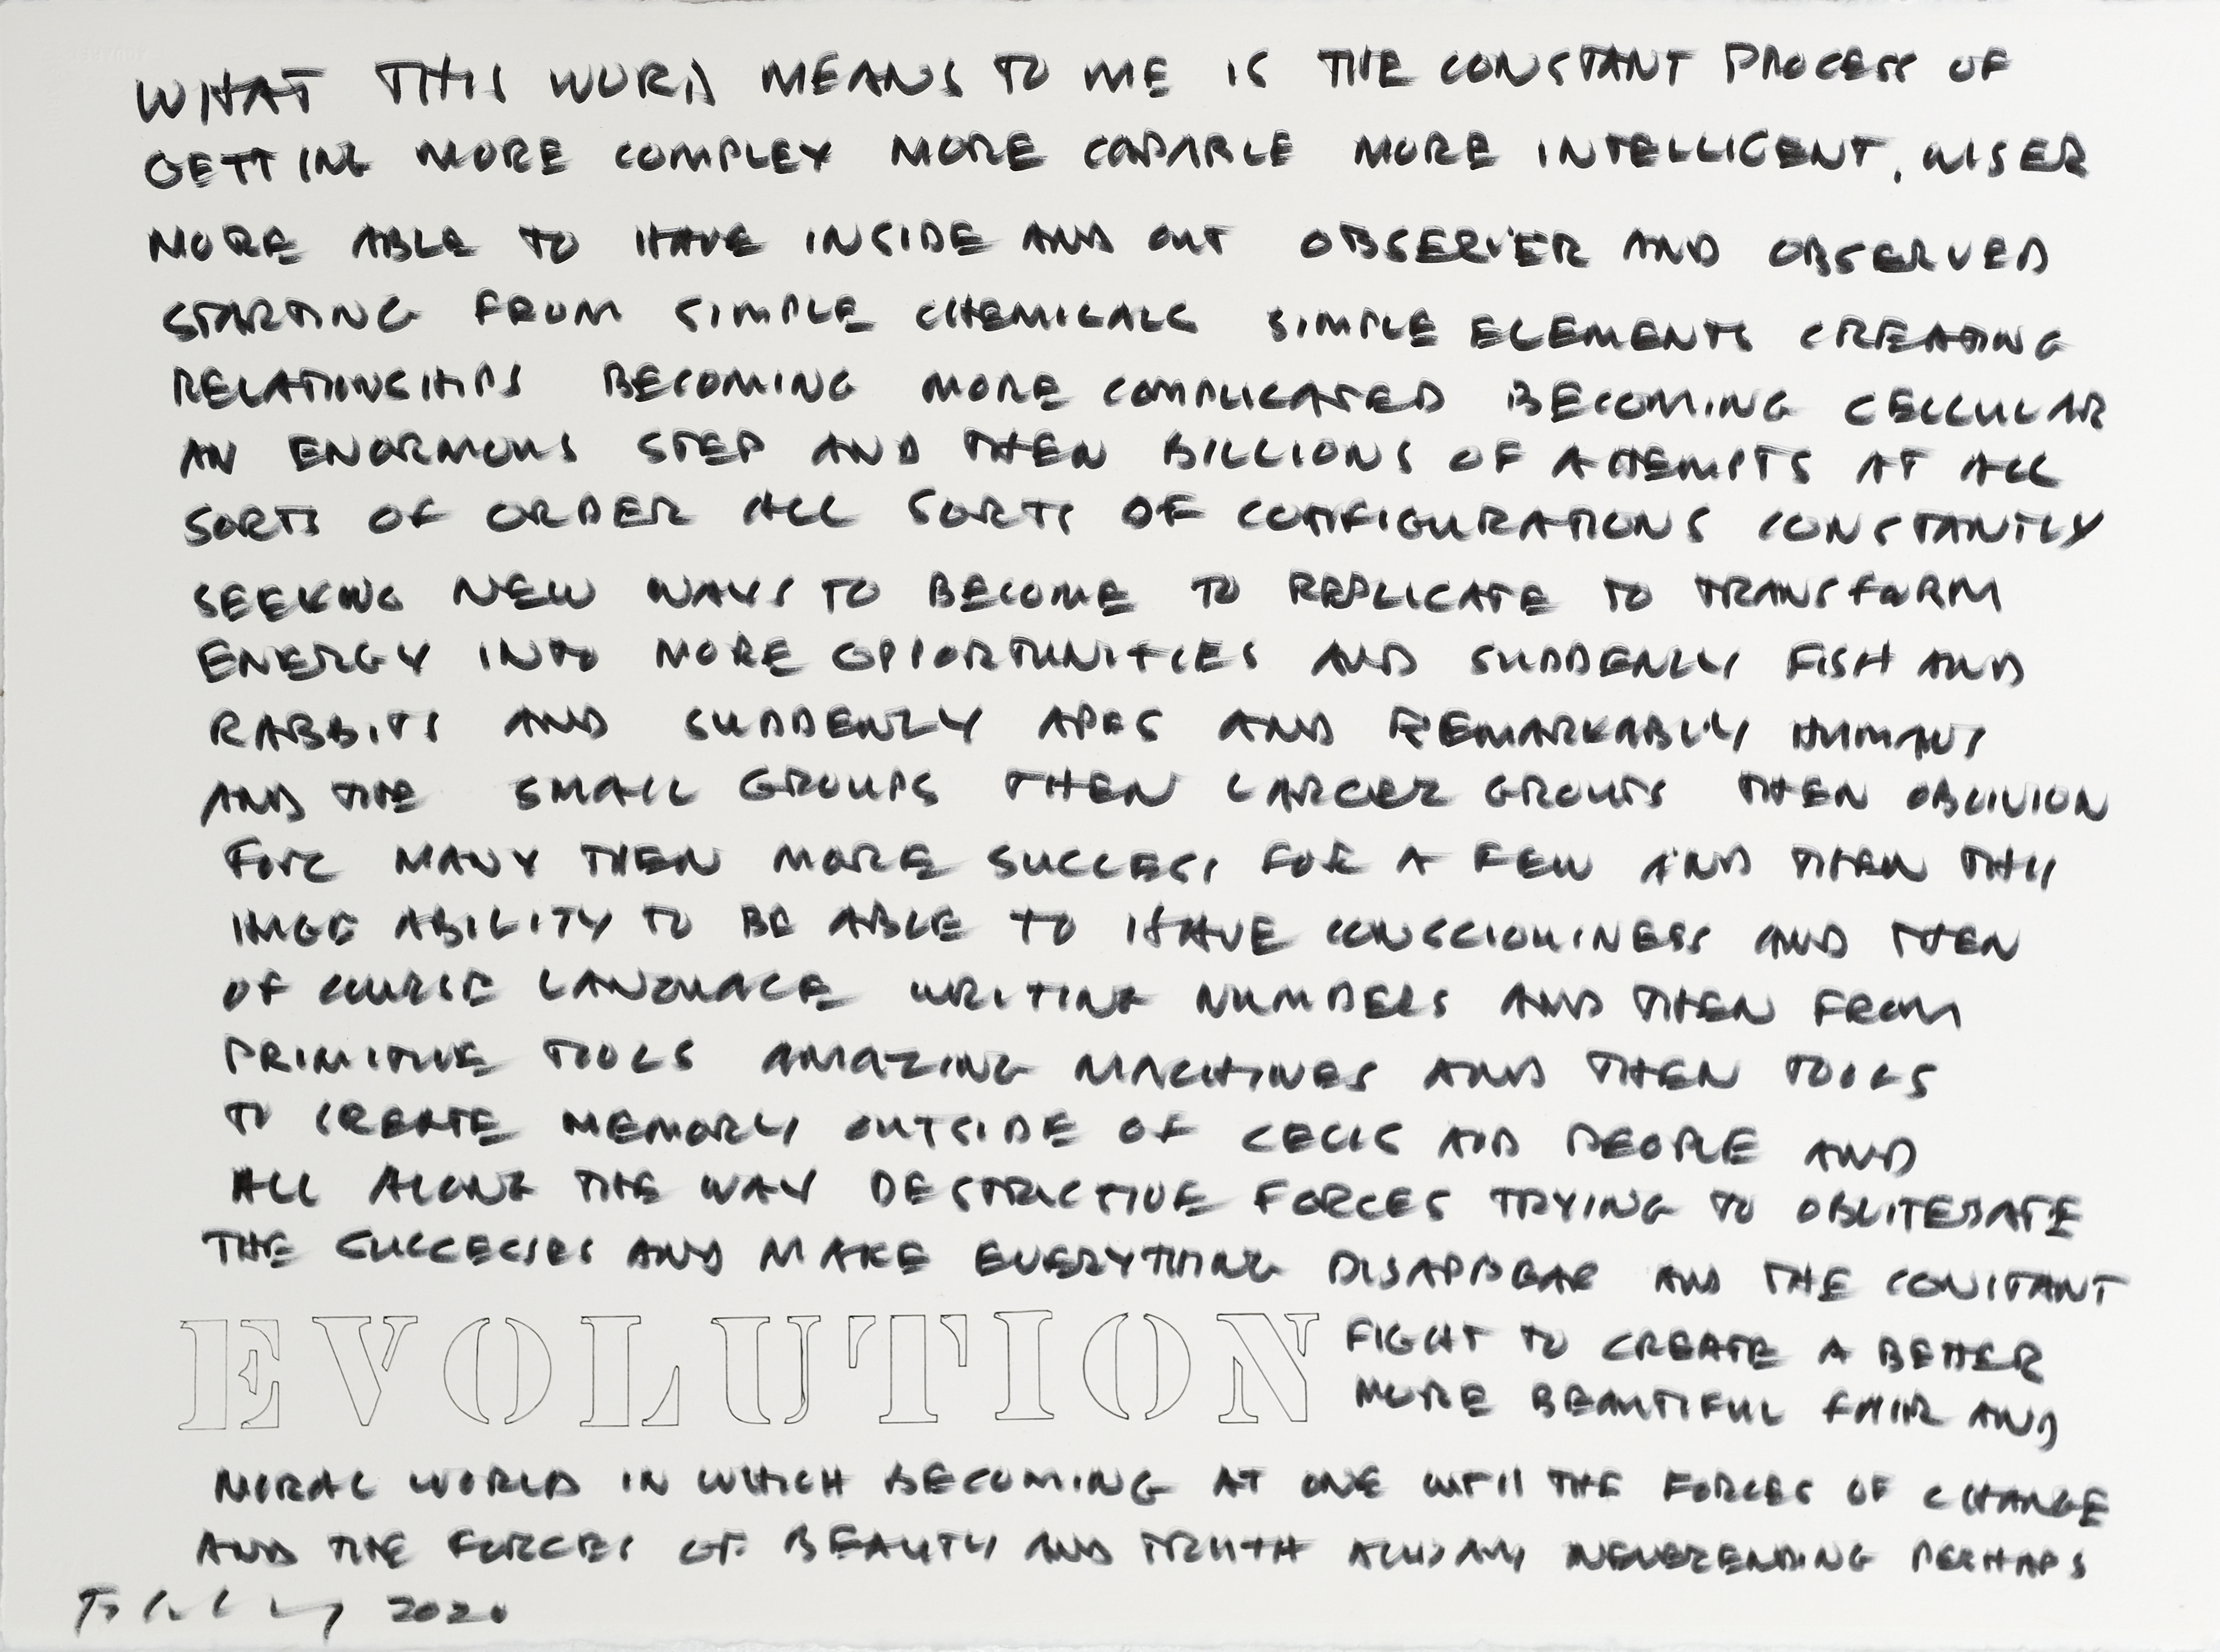 WHAT THIS WORD MEANS TO ME IS THE CONSTANT PROCESS OF
GETTING MORE COMPLEX MORE CAPABLE MORE INTELLIGENT, WISER
MORE ABLE TO HAVE INSIDE AND OUT OBSERVER AND OBSERVED
STARTING FROM SIMPLE CHEMICALS SIMPLE ELEMENTS CREATING
RELATIONSHIPS BECOMING MORE COMPLICATED BECOMING CELLULAR
AN ENORMOUS STEP AND THEN BILLIONS OF ATTEMPTS AT ALL
SORTS OF ORDER ALL SORTS OF CONFIGURATIONS CONSTANTLY
SEEKING NEW WAYS TO BECOME TO REPLICATE TO TRANSFORM
ENERGY INTO MORE OPPORTUNITIES AND SUDDENLY FISH AND
RABBITS AND SUDDENLY APES AND REMARKABLY HUMANS
AND THE SMALL GROUPS THEN LARGER GROUPS THEN OBLIVION
FOR MANY THEN MORE SUCCESS FOR A FEW AND THEN THIS
HUGE ABILITY TO BE ABLE TO HAVE CONSCIOUSNESS AND THEN
OF COURSE LANGUAGE WRITING NUMBERS AND THEN FROM
PRIMITIVE TOOLS AMAZING MACHINES AND THEN TOOLS
TO CREATE MEMORY OUTSIDE OF CELLS AND PEOPLE AND
ALL ALONG THE WAY DESTRUCTIVE FORCES TRYING TO OBLITERATE
THE SUCCESSES AND MAKE EVERYTHING DISAPPEAR AND THE CONSTANT
EVOLUTION FIGHT TO CREATE A BETTER
MORE BEAUTIFUL FAIR AND
MORAL WORLD IN WHICH BECOMING AT ONE WITH THE FORCES OF CHANGE
AND THE FORCES OF BEAUTY AND TRUTH ALWAYS NEVERENDING PERHAPS
2020